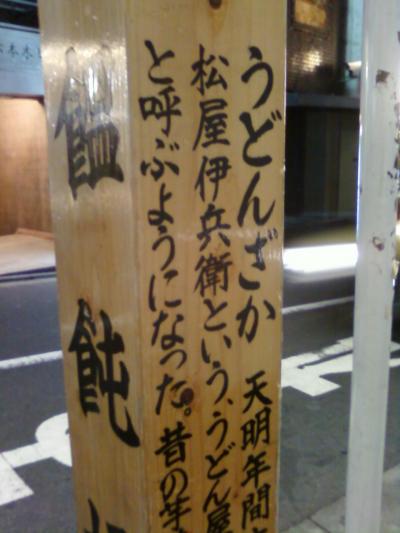 うどんざか 天明年間
松屋伊兵衛という、うどん屋
と呼ぶようになった。昔の年
饂飩